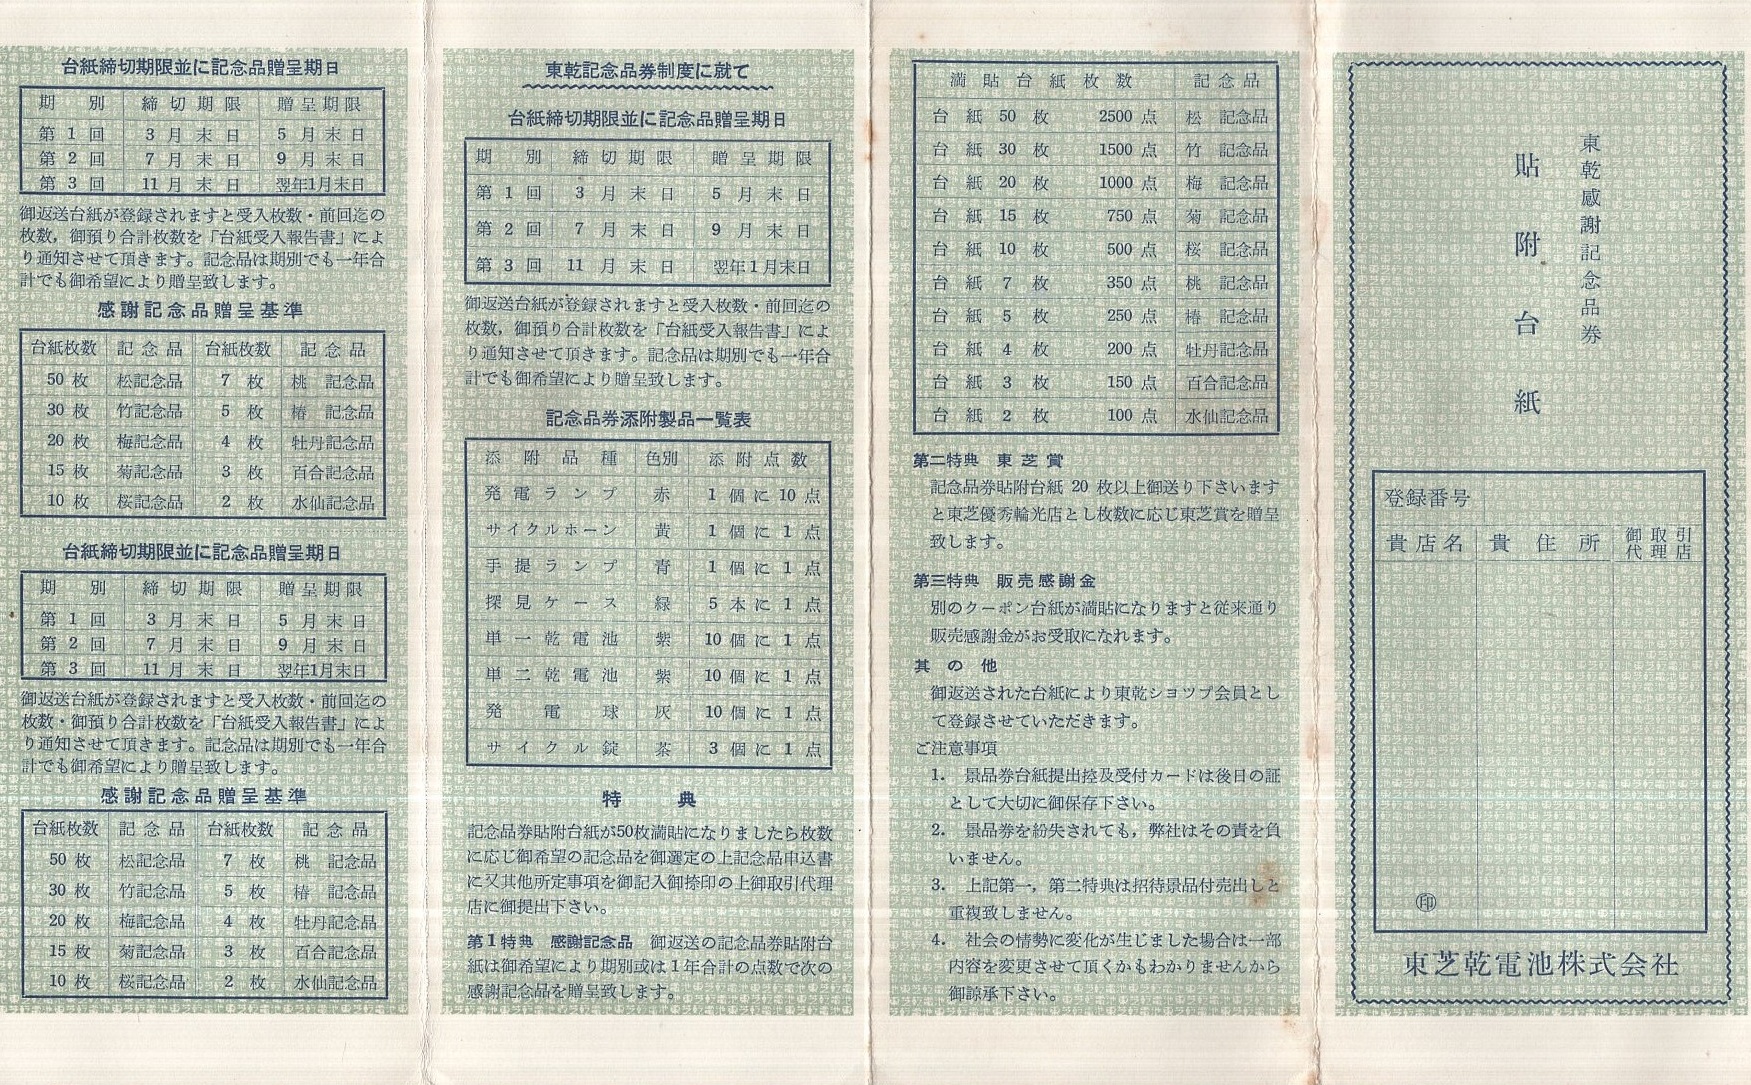 台紙締切期限並に記念品贈呈期日
期 別 締切期限 贈呈期限
第1回 3月末日 5月末日
第2回 7月末日 9月末日
第3回 11月末日 翌年1月末日
御返送台紙が登録されますと受入枚数・前回迄の
枚数，御預り合計枚数を「台紙受入報告書」によ
り通知させて頂きます。記念品は期別でも一年合
計でも御希望により贈呈致します。
感謝記念品贈呈基準
台紙枚数 記念品 台紙枚数 記念品
50枚 松記念品 7枚 桃 記念品
30枚 竹記念品 5枚 椿 記念品
20枚 梅記念品 4枚 牡丹記念品
15枚 菊記念品 3枚 百合記念品
10枚 桜記念品 2枚 水仙記念品
台紙締切期限並に記念品贈呈期日
期 別 締切期限 贈呈期限
第1回 3月末日 5月末日
第2回 7月末日 9月末日
第3回 11月末日 翌年1月末日
御返送台紙が登録されますと受入枚数・前回迄の
枚数・御預り合計枚数を「台紙受入報告書」によ
り通知させて頂きます。記念品は期別でも一年合
計でも御希望により贈呈致します。
感謝記念品贈呈基準
台紙枚数 記念品 台紙枚数 記念品
50枚 松記念品 7枚 桃 記念品
30枚 竹記念品 5枚 椿 記念品
20枚 梅記念品 4枚 牡丹記念品
15枚 菊記念品 3枚 百合記念品
10枚 桜記念品 2枚 水仙記念品
東乾記念品券制度に就て
台紙締切期限並に記念品贈呈期日
期 別 締切期限 贈呈期限
第1回 3月末日 5月末日
第2回 7月末日 9月末日
第3回 11月末日 翌年1月末日
御返送台紙が登録されますと受入枚数・前回迄の
枚数，御預り合計枚数を「台紙受入報告書」によ
り通知させて頂きます。記念品は期別でも一年合
計でも御希望により贈呈致します。
記念品券添附製品一覧表
添附品種 色別 添附点数
発電ランプ 赤 1個に10点
サイクルホーン 黄 1個に1点
手提ランプ 青 1個に1点
探見ケース 緑 5本に1点
単一乾電池 紫 10個に1点
単二乾電池 紫 10個に1点
発電球 灰 10個に1点
サイクル錠 茶 3個に1点
特 典
記念品券貼附台紙が50枚満貼になりましたら枚数
に応じ御希望の記念品を御選定の上記念品申込書
に又其他所定事項を御記入御捺印の上御取引代理
店に御提出下さい。
第1特典 感謝記念品 御返送の記念品券貼附台
紙は御希望により期別或は1年合計の点数で次の
感謝記念品を贈呈致します。
満貼台紙枚数 記念品
台紙50枚 2500点 松 記念品
台紙30枚 1500点 竹 記念品
台紙20枚 1000点 梅 記念品
台紙15枚 750点 菊 記念品
台紙10枚 500点 桜 記念品
台紙7枚 350点 桃 記念品
台紙5枚 250点 椿 記念品
台紙4枚 200点 牡丹記念品
台紙3枚 150点 百合記念品
台紙2枚 100点 水仙記念品
第二特典 東芝賞
記念品券貼附台紙20枚以上御送り下さいます
と東芝優秀輪光店とし枚数に応じ東芝賞を贈呈
致します。
第三特典 販売感謝金
別のクーポン台紙が満貼になりますと従来通り
販売感謝金がお受取になれます。
其の他
御返送された台紙により東乾ショツプ会員とし
て登録させていただきます。
ご注意事項
1. 景品券台紙提出控及受付カードは後日の証
として大切に御保存下さい。
2. 景品券を紛失されても，弊社はその責を負
いません。
3. 上記第一，第二特典は招待景品付売出しと
重複致しません。
4. 社会の情勢に変化が生じました場合は一部
内容を変更させて頂くかもわかりませんから
御諒承下さい。
東乾感謝記念品券
貼附台紙
登録番号
貴店名 貴住所 御取引代理店
㊞
東芝乾電池株式会社